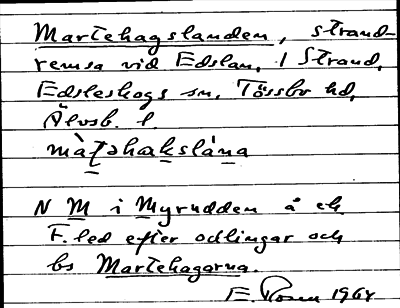 Martehagslanden, strand-
remsa vid Edslan, i Strand,
Edsleskogs sn, Tössbo hd,
Älvsb. l.
màţəhaksláṇa
N M i Myrudden å ek.
F. led efter odlingar och
bs Martehagarna.
E. Rosen 1964